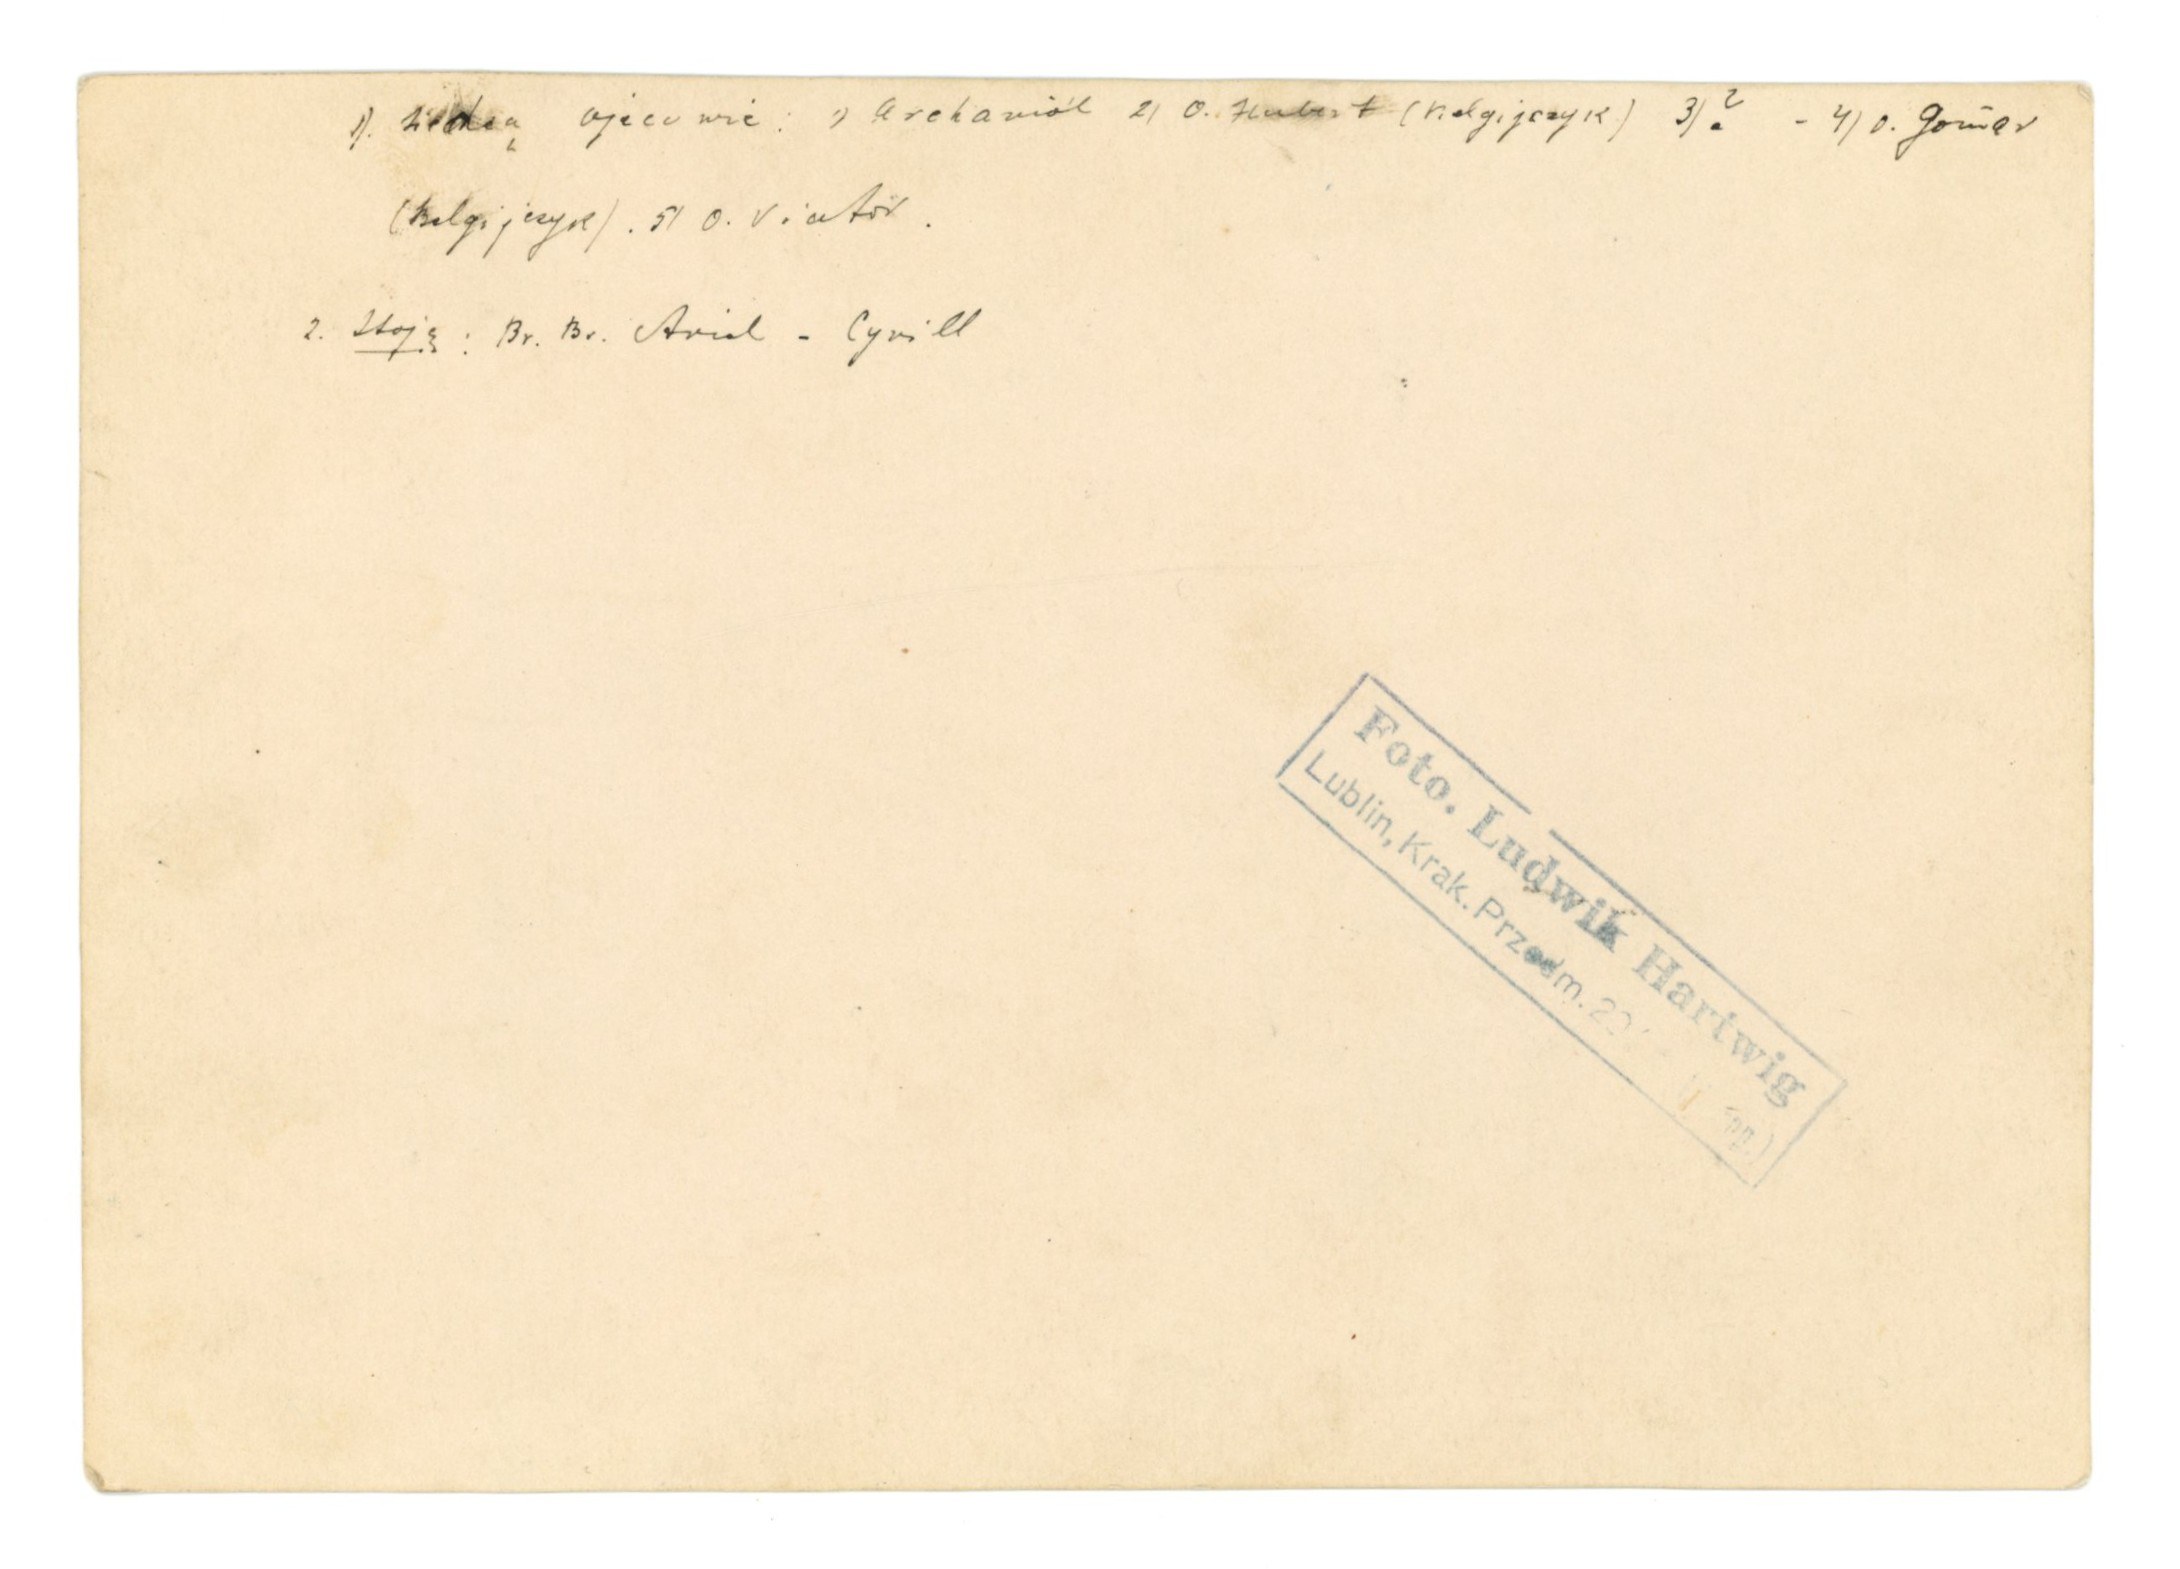 1). siedzą ojcowie: 1) Archanioł 2) O. Hubert (Belgijczyk) 3) ? - 4) O. Gomar
(Belgijczyk). 5) O. Viator.
2. Stoją: Br. Br. Ariel - Cyrill
Foto. Ludwik Hartwig
Lublin, Krak. Przedm.